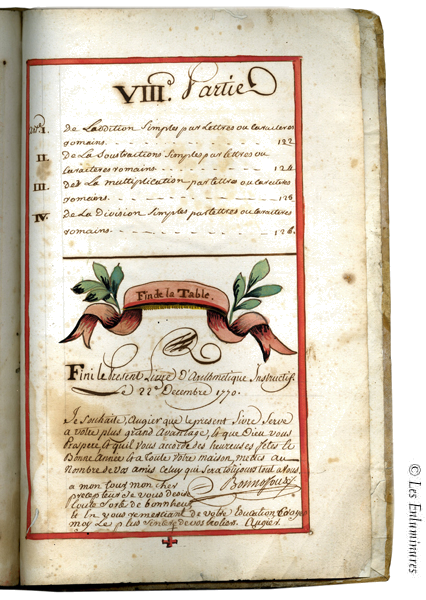 VIII.ᵉ Partie
I. De Laddition Simples par Lettres ou Caracteres
romains. 122
II. De La Soustractions Simples par lettres ou
Caracteres romains. 124
III. De La Multiplication par lettres ou caracteres
romains. 125
IV. De La Division Simples par lettres ou caracteres
romains. 126.
Fin de la Table.
Fini le Present Livre D'Arithmetique Instructif
Le 22e Decembre 1770.
Je Souhaite, Augier que le present Livre Serve
a votre plus grand Avantage, et que Dieu vous
Prospere, et quil vous acorde des heureuses fêtes et
Bonne Année et a toute votre maison, mettés au
Nombre de vos amis Celuy qui Sera toujours tout a Vous.
Bonnefoux
a mon tour mon cher
precepteur de vous
toute Sorte de bonnheur
en vous remerciant de votre education
moy le plus Sincere de vos ecoliers. Augier.
© Les Enluminures